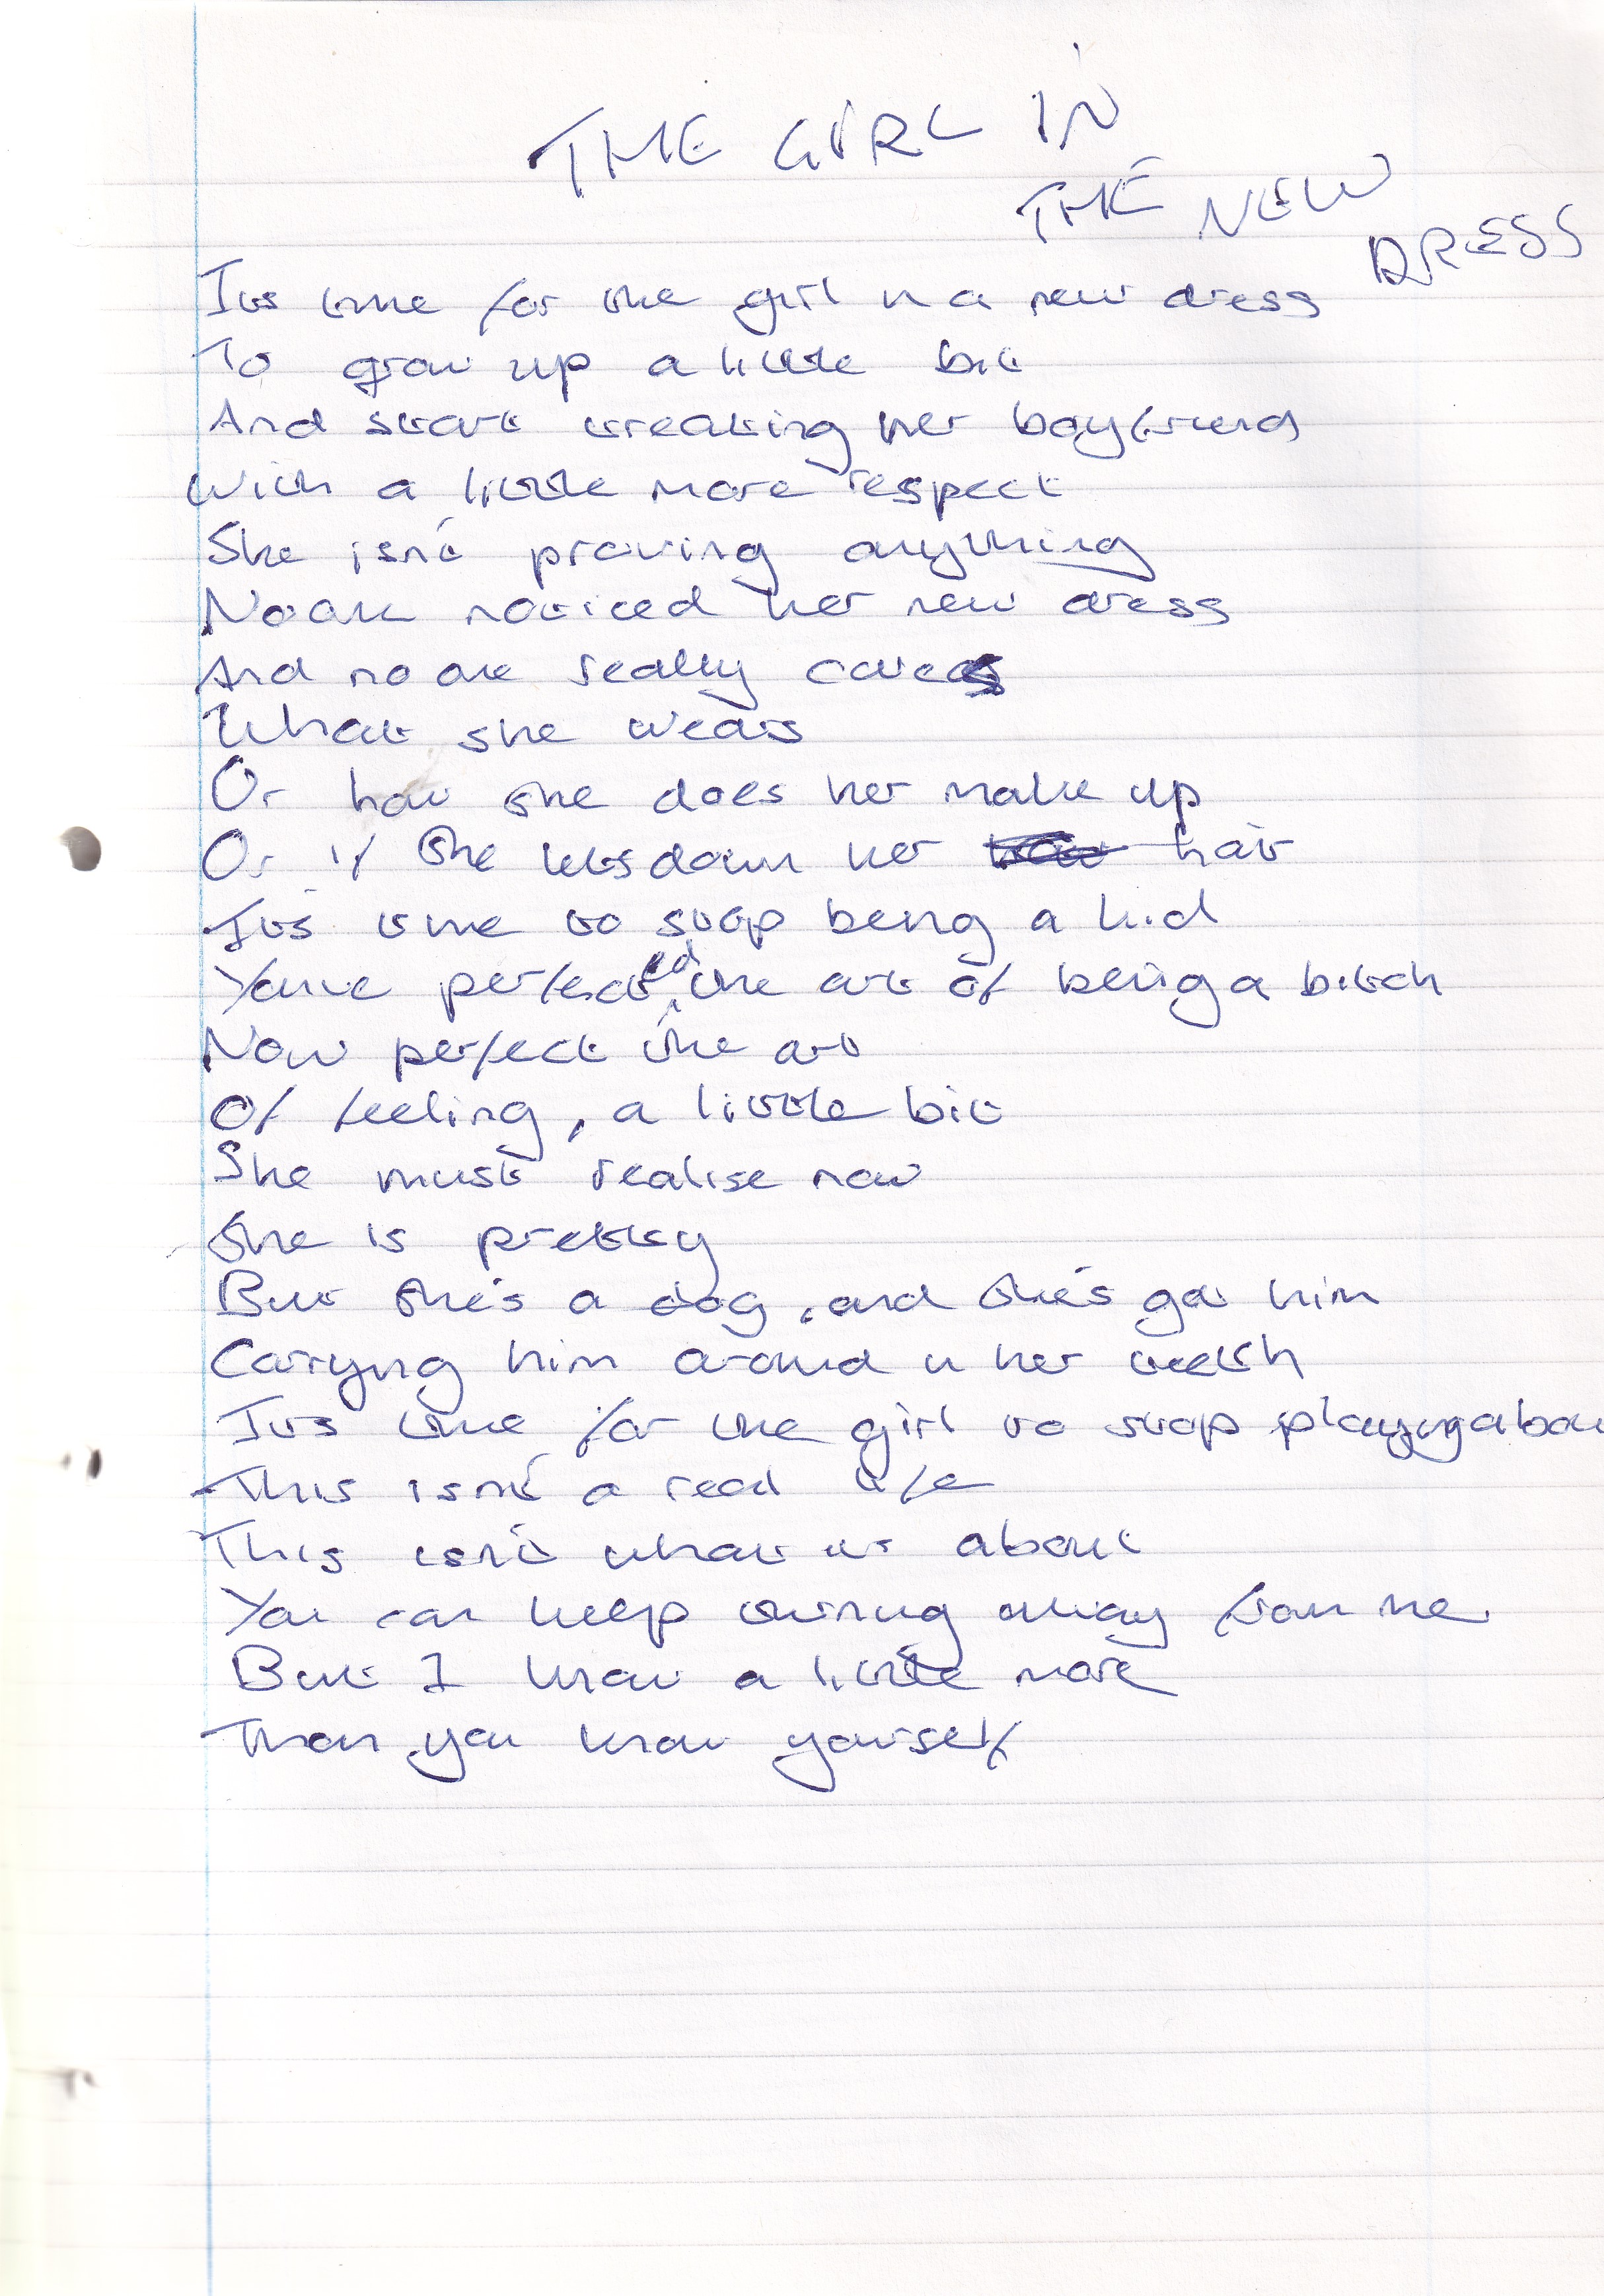 THE GIRL IN
THE NEW
DRESS
Its time for the girl in a new dress
To grow up a little bit
And start treating her boyfriend
With a little more respect
She isn't proving anything
No one noticed her new dress
And no one really cares
What she wears
Or how she does her make up
Or if she lets down her hair
Its time to stop being a kid
You've perfected the art of being a bitch
Now perfect the art
Of feeling, a little bit
She must realise now
She is pretty
But she's a dog, and she's got him
Carrying him around in her teeth
Its time for the girl to stop playing abou
This isn't a real life
This isn't what its about
You can keep turning away from me
But I know a little more
Than you know yourself